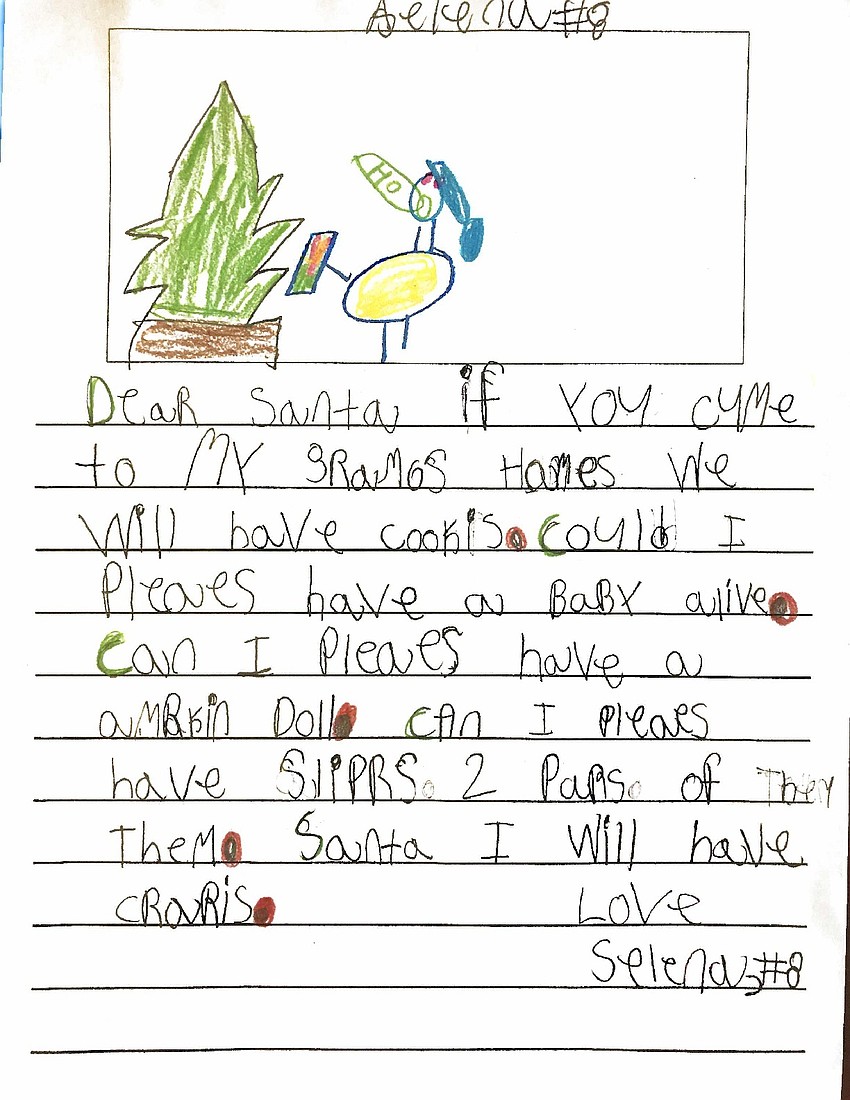 Selena #8
Ho
Dear Santa if you cyme
to My gRaMos Homes we
Will have cookis. Could I
Pleaves have a BaBy alive.
Can I Pleaves have a
aMPkin Doll. CAn I pleaes
have SliPRS. 2 PaPs. of They
TheM. Santa I Will have
cRaRis. Love
Selena #8